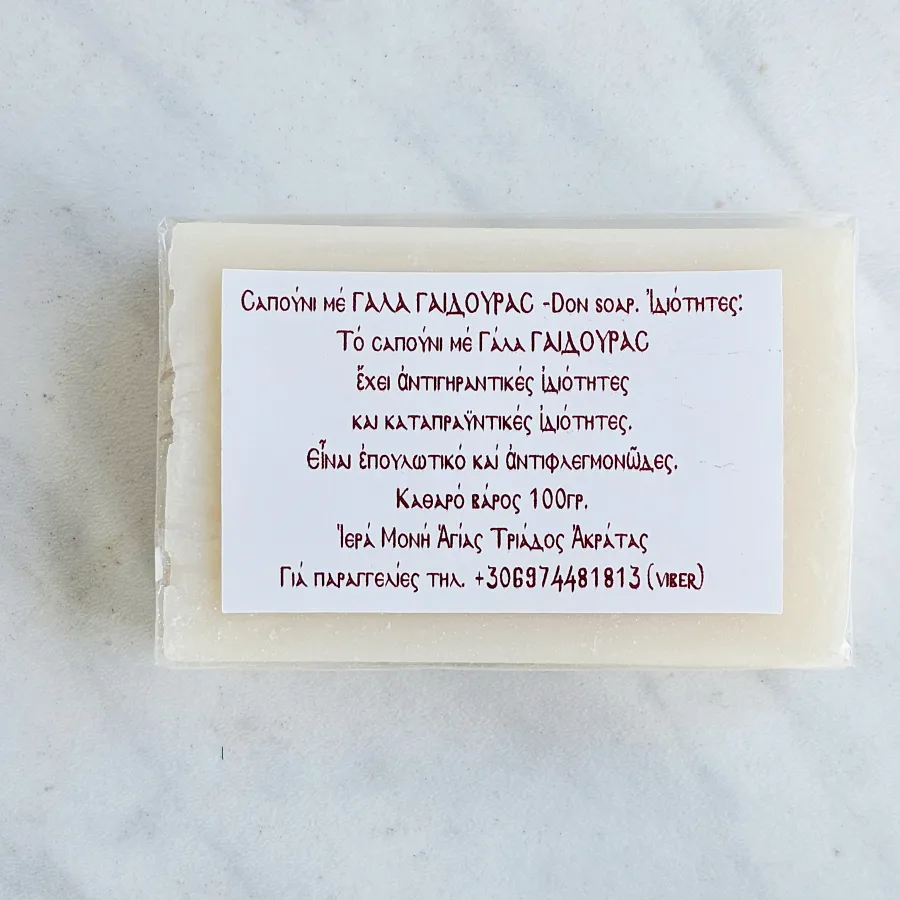 Σαπούνι μέ ΓΑΛΑ ΓΑΙΔΟΥΡΑΣ -Don soap. Ἰδιότητες:
Τό σαπούνι μέ Γάλα ΓΑΙΔΟΥΡΑΣ
ἔχει ἀντιγηραντικές ἰδιότητες
και καταπραϋντικές ἰδιότητες.
Εἶναι ἐπουλωτικό καί ἀντιφλεγμονῶδες.
Καθαρό βάρος 100γρ.
Ἱερά Μονή Ἁγίας Τριάδος Ἀκράτας
Γιά παραγγελίες τηλ. +306974481813 (viber)